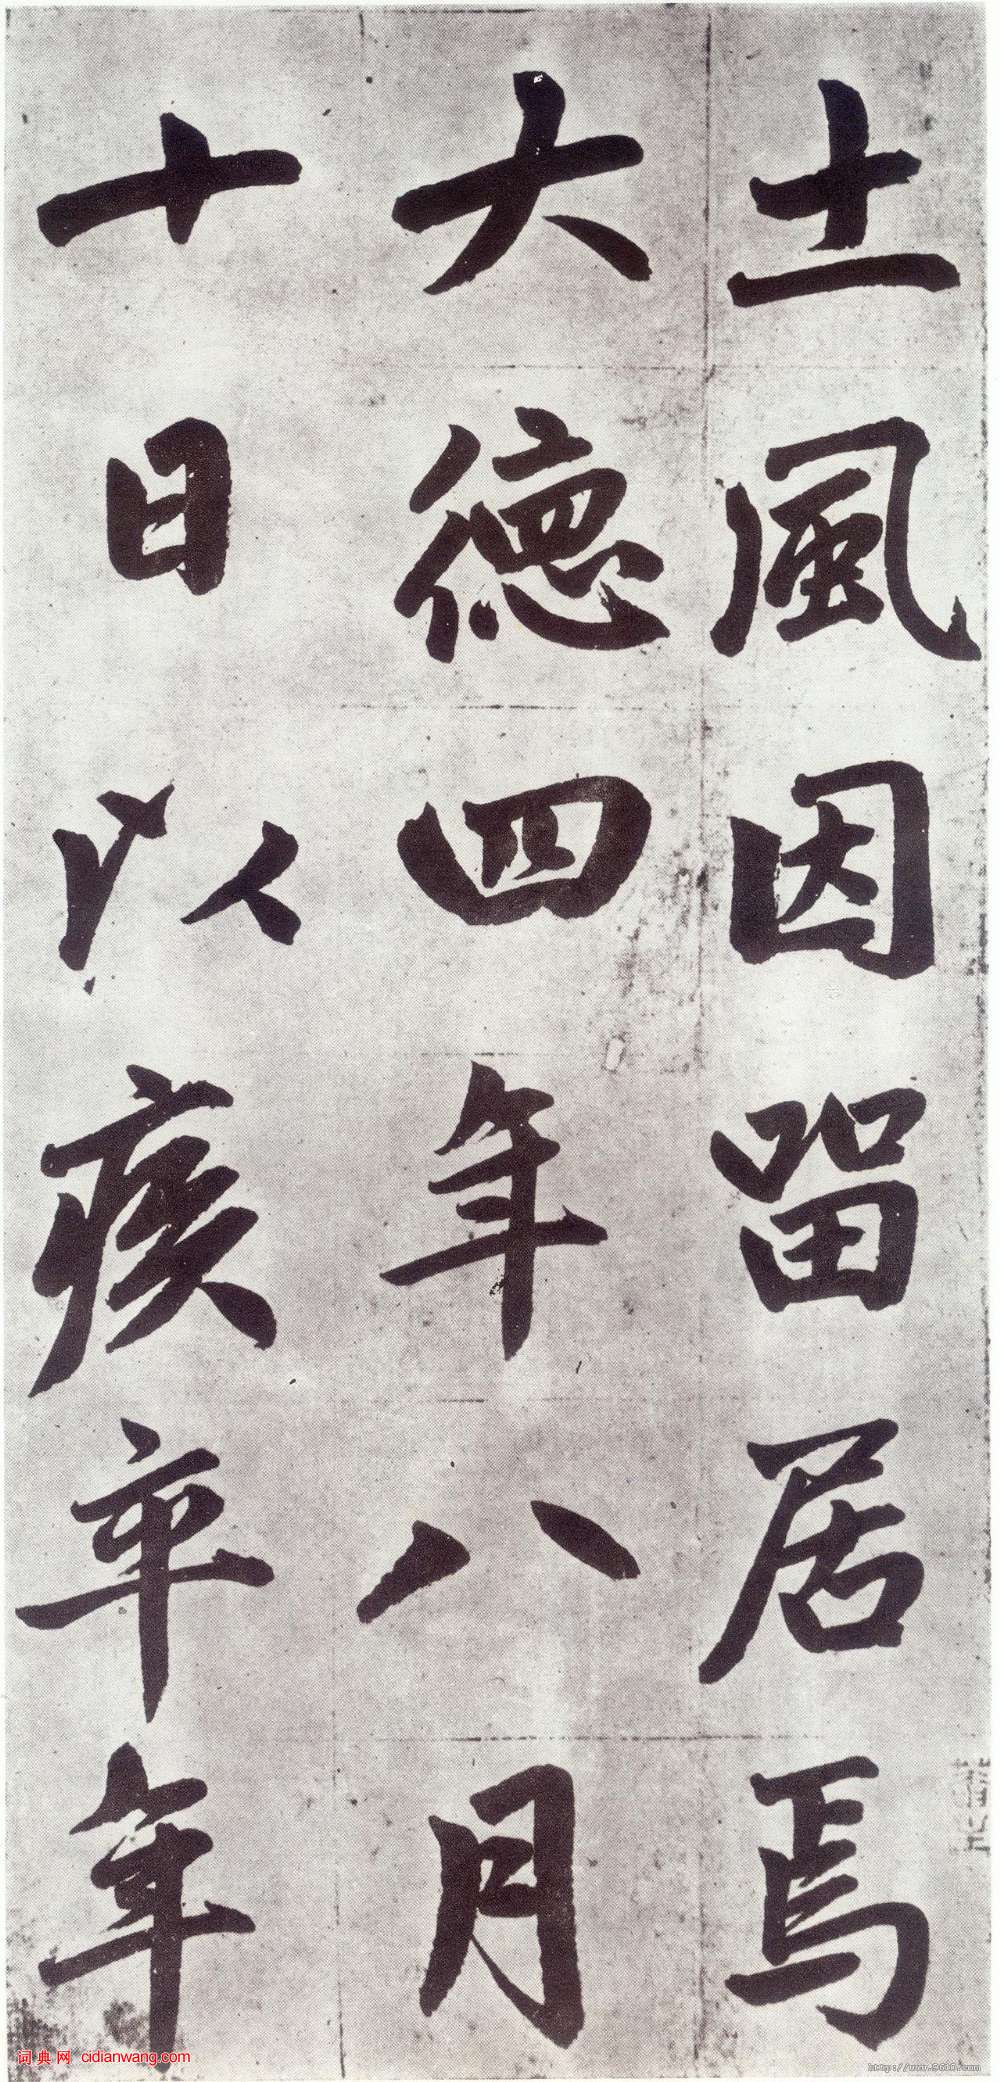 土風因留居焉
大德四年八月
十日以疾卒年
词典网 cidianwang.com